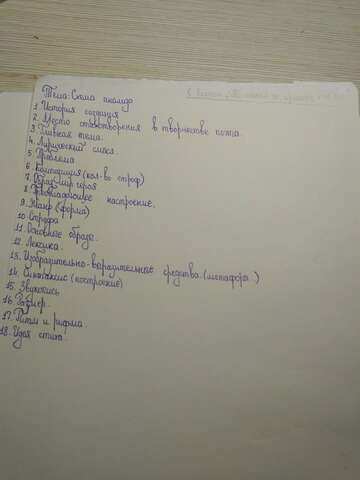 Тема: Схема анализа
1. История создания
2. Место стихотворения в творчестве поэта.
3. Главная тема.
4. Лирический сюжет.
5. Проблема
6. Композиция (кол-во строф)
7. Образ лир. героя
8. Преобладающее настроение.
9. Жанр (форма)
10. Строфа
11. Основные образы.
12. Лексика.
13. Изобразительно-выразительные средства (метафора)
14. Синтаксис (построение)
15. Звукопись
16. Размер.
17. Ритм и рифма
18. Идея стиха.